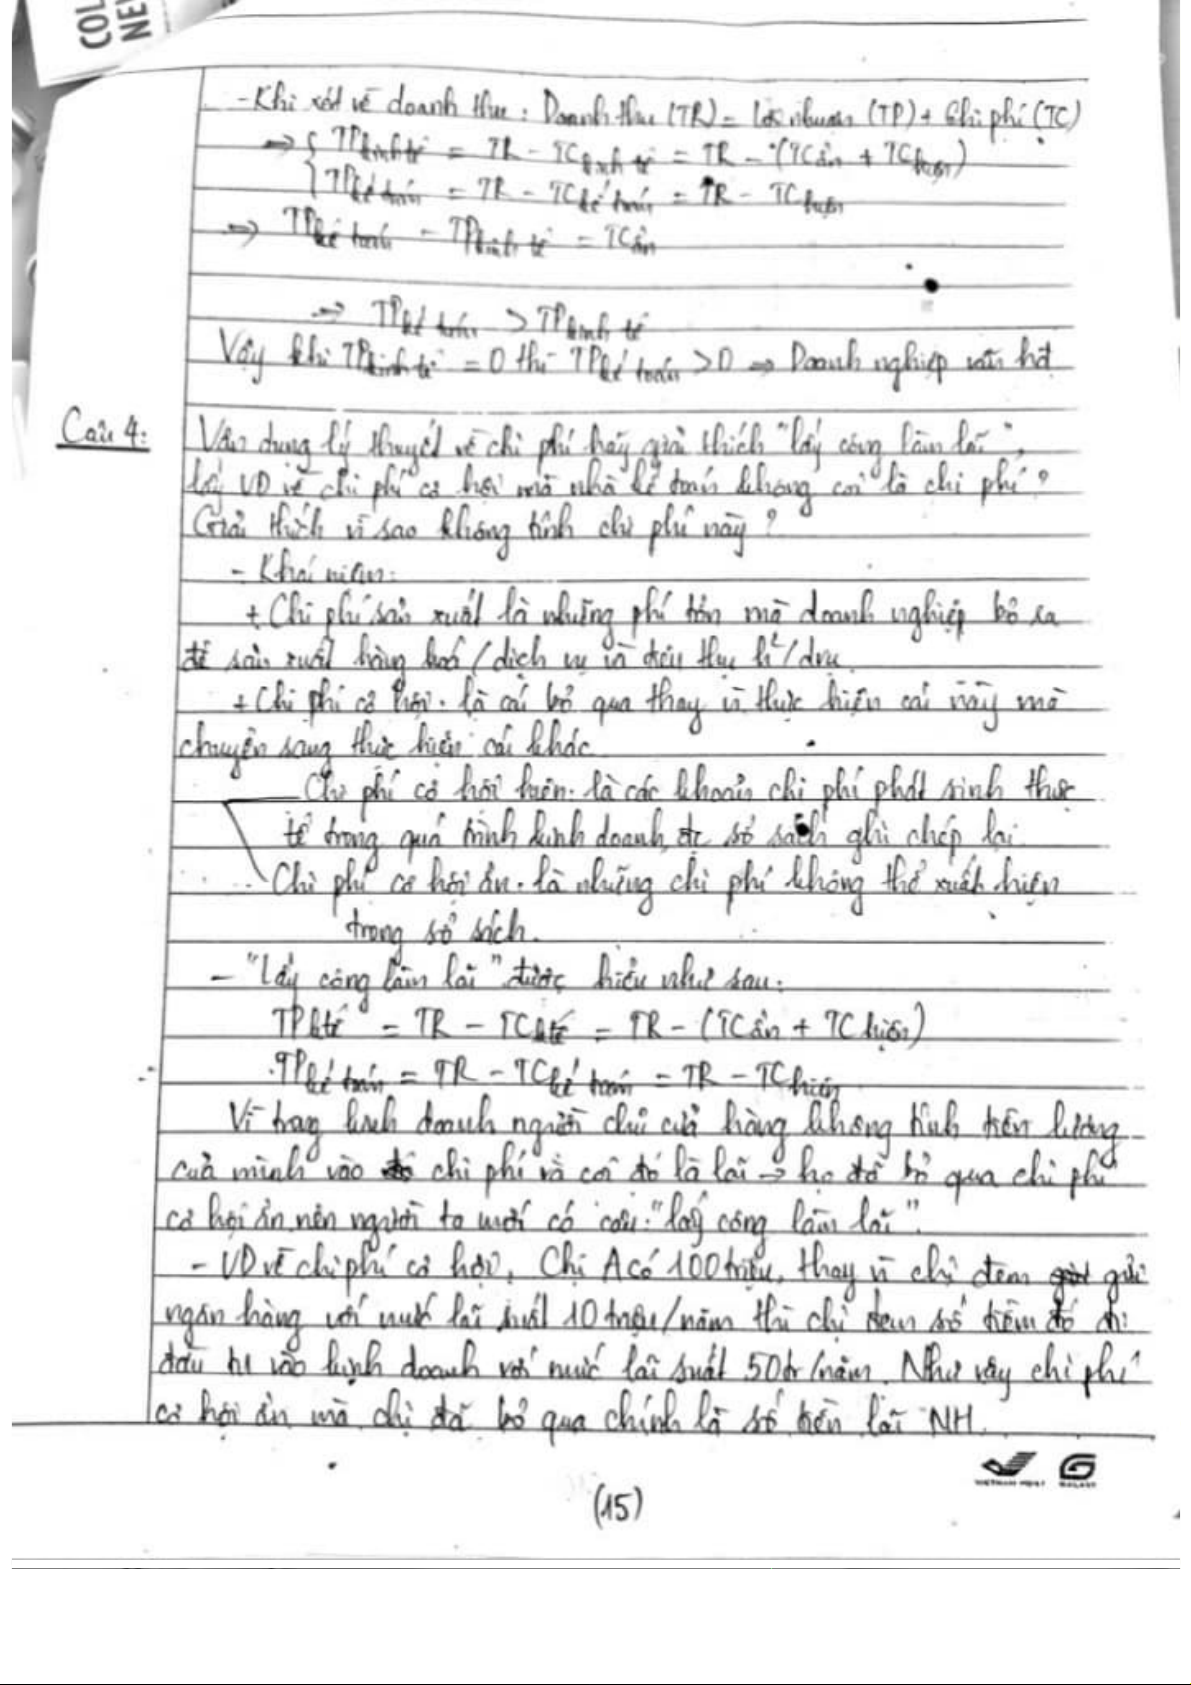 COL
NEW
- Khi xét về doanh thu: Doanh thu (TR) = Lợi nhuận (TP) + Chi phí (TC)
=> { TPkinh tế = TR - TCkinh tế = TR - (TCẩn + TChiện)
{ TPkế toán = TR - TCkế toán = TR - TChiện
=> TPkế toán - TPkinh tế = TCẩn
=> TPkế toán > TPkinh tế
Vậy khi TPkinh tế = 0 thì TPkế toán > 0 => Doanh nghiệp vẫn hđ
Câu 4: Vận dụng lý thuyết về chi phí hãy giải thích "lấy công làm lãi",
lấy VD về chi phí cơ hội mà nhà kế toán không coi là chi phí?
Giải thích vì sao không tính chi phí này?
- Khái niệm:
+ Chi phí sản xuất là những phí tổn mà doanh nghiệp bỏ ra
để sản xuất hàng hoá / dịch vụ và tiêu thụ h² / dvụ
+ Chi phí cơ hội: là cái bỏ qua thay vì thực hiện cái này mà
chuyển sang thực hiện cái khác
Chi phí cơ hội hiện: là các khoản chi phí phát sinh thực
tế trong quá trình kinh doanh, đc sổ sách ghi chép lại
Chi phí cơ hội ẩn: là những chi phí không thể xuất hiện
trong sổ sách.
- "Lấy công làm lãi" được hiểu như sau:
TPktế = TR - TCktế = TR - (TCẩn + TChiện)
TPkế toán = TR - TCkế toán = TR - TChiện
Vì trong kinh doanh người chủ cửa hàng không tính tiền lương
của mình vào chi phí và coi đó là lãi → họ đã bỏ qua chi phí
cơ hội ẩn nên người ta mới có câu: "lấy công làm lãi".
- VD về chi phí cơ hội: Chị A có 100 triệu, thay vì chị đem gửi
ngân hàng với mức lãi suất 10 triệu/năm thì chị đem số tiền đó đi
đầu tư vào kinh doanh với mức lãi suất 50tr/năm. Như vậy chi phí
cơ hội ẩn mà chị đã bỏ qua chính là số tiền lãi NH.
VIETNAM POST GALAXY
(15)